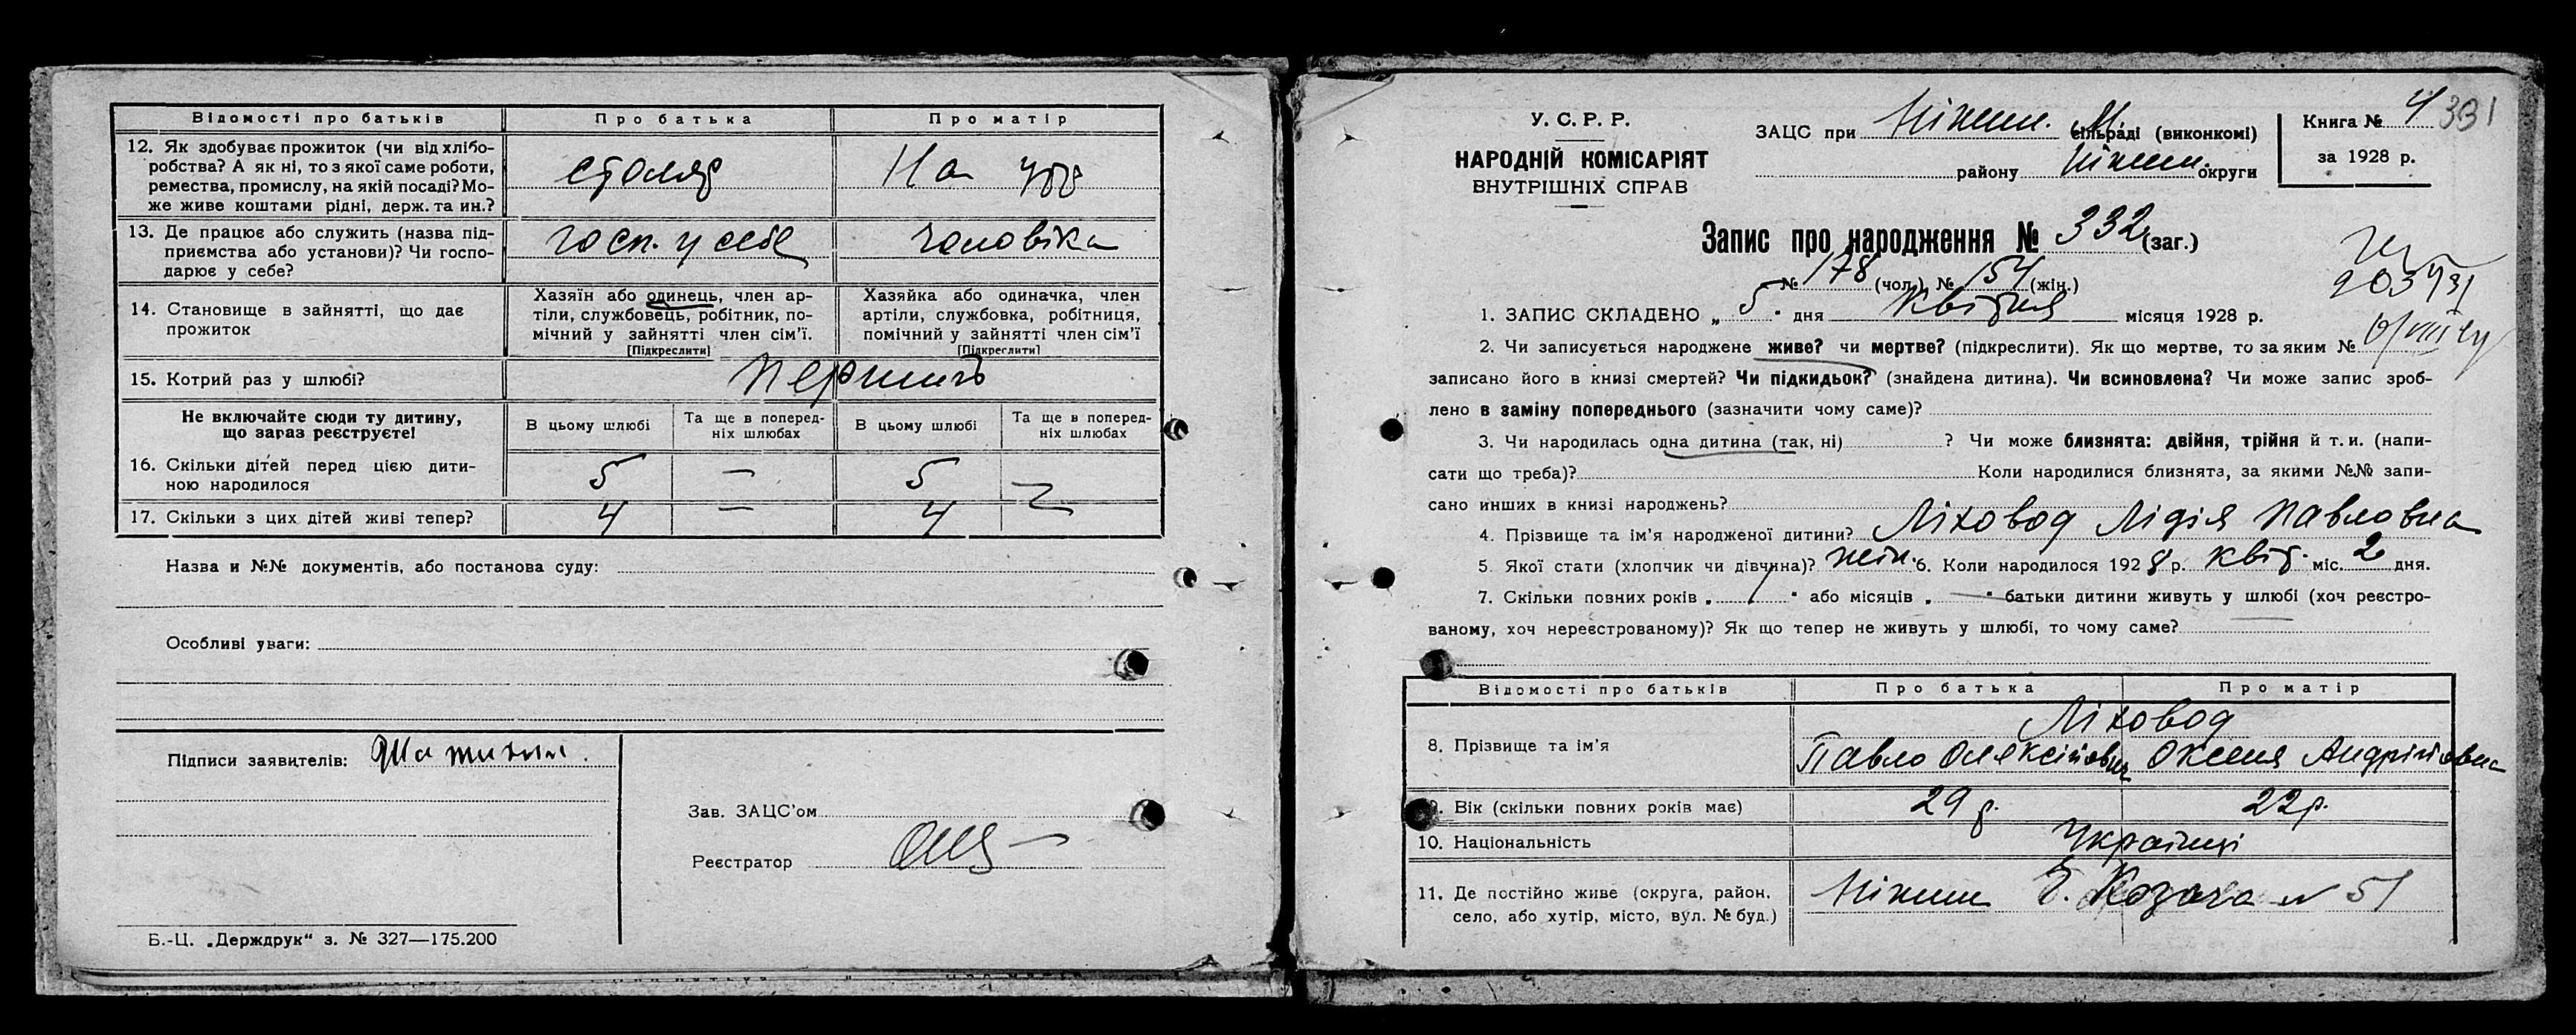 Відомості про батьків Про батька Про матір
12. Як здобуває прожиток (чи від хлібо-
робства? А як ні, то з якої саме роботи,
ремества, промислу, на якій посаді? Мо-
же живе коштами рідні, держ. та ин.?
столяр На
13. Де працює або служить (назва під-
приємства або установи)? Чи госпо-
дарює у себе?
госп. у себе чоловіка
14. Становище в зайнятті, що дає
прожиток
Хазяїн або одинець, член ар-
тіли, службовець, робітник, по-
мічний у зайнятті член сім'ї.
[Підкреслити]
Хазяйка або одиначка, член
артіли, службовка, робітниця,
помічний у зайнятті член сім'ї
[Підкреслити]
15. Котрий раз у шлюбі?
Не включайте сюди ту дитину,
що зараз реєструєте!
В цьому шлюбі
Та ще в поперед-
ніх шлюбах
В цьому шлюбі
Та ще в поперед-
ніх шлюбах
16. Скільки дітей перед цією дити-
ною народилося
5 — 5
17. Скільки з цих дітей живі тепер? 4 — 4
Назва и №№ документів, або постанова суду:
Особливі уваги:
Підписи заявителів:
Зав. ЗАЦС'ом
Реєстратор
Б.-Ц. „Держдрук“ з. № 327—175.200
У. С. Р. Р.
НАРОДНІЙ КОМІСАРІЯТ
ВНУТРІШНІХ СПРАВ
ЗАЦС при Ніжин. М. сільраді (виконкомі)
району Ніжин. округи
Книга № 4 331
за 1928 р.
Запис про народження № 332 (заг.)
№ 178 (чол.) № 154 (жін.)
1. ЗАПИС СКЛАДЕНО „ 5 “ дня квітня місяця 1928 р.
2. Чи записується народжене живе? чи мертве? (підкреслити). Як що мертве, то за яким №
записано його в книзі смертей? Чи підкидьок? (знайдена дитина). Чи всиновлена? Чи може запис зроб-
лено в заміну попереднього (зазначити чому саме)?
3. Чи народилась одна дитина (так, ні) ? Чи може близнята: двійня, трійня й т. и. (напи-
сати що треба)? Коли народилися близнята, за якими №№ запи-
сано инших в книзі народжень?
4. Прізвище та ім'я народженої дитини? Ліховод Лідія Павловна
5. Якої стати (хлопчик чи дівчина)? жін. 6. Коли народилося 1928 р. квіт. міс. 2 дня.
7. Скільки повних років „ “ або місяців „ — “ батьки дитини живуть у шлюбі (хоч реєстро-
ваному, хоч нереєстрованому)? Як що тепер не живуть у шлюбі, то чому саме?
Відомості про батьків Про батька Про матір
Ліховод
8. Прізвище та ім'я Павло Олексійович Оксеня Андрійовна
9. Вік (скільки повних років має) 29 р. 22 р.
10. Національність Українці
11. Де постійно живе (округа, район,
село, або хутір, місто, вул. № буд.)
Ніжин Козача № 51